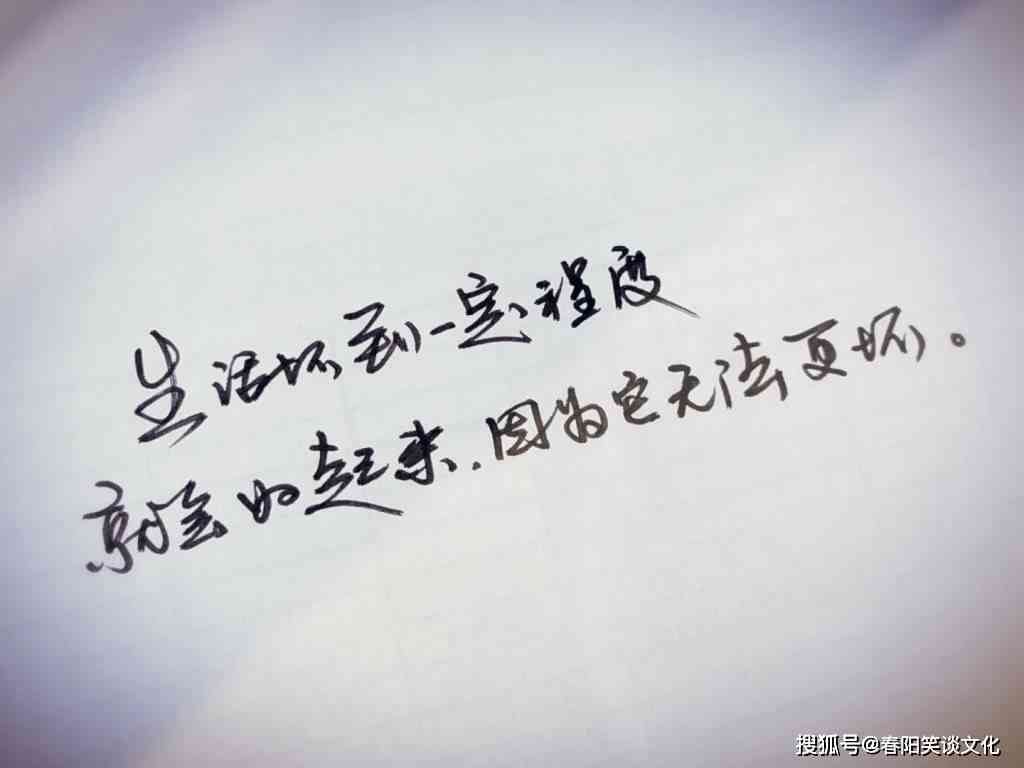 生活坏到一定程度
就会好起来.因为它无法更坏。
搜狐号@春阳笑谈文化